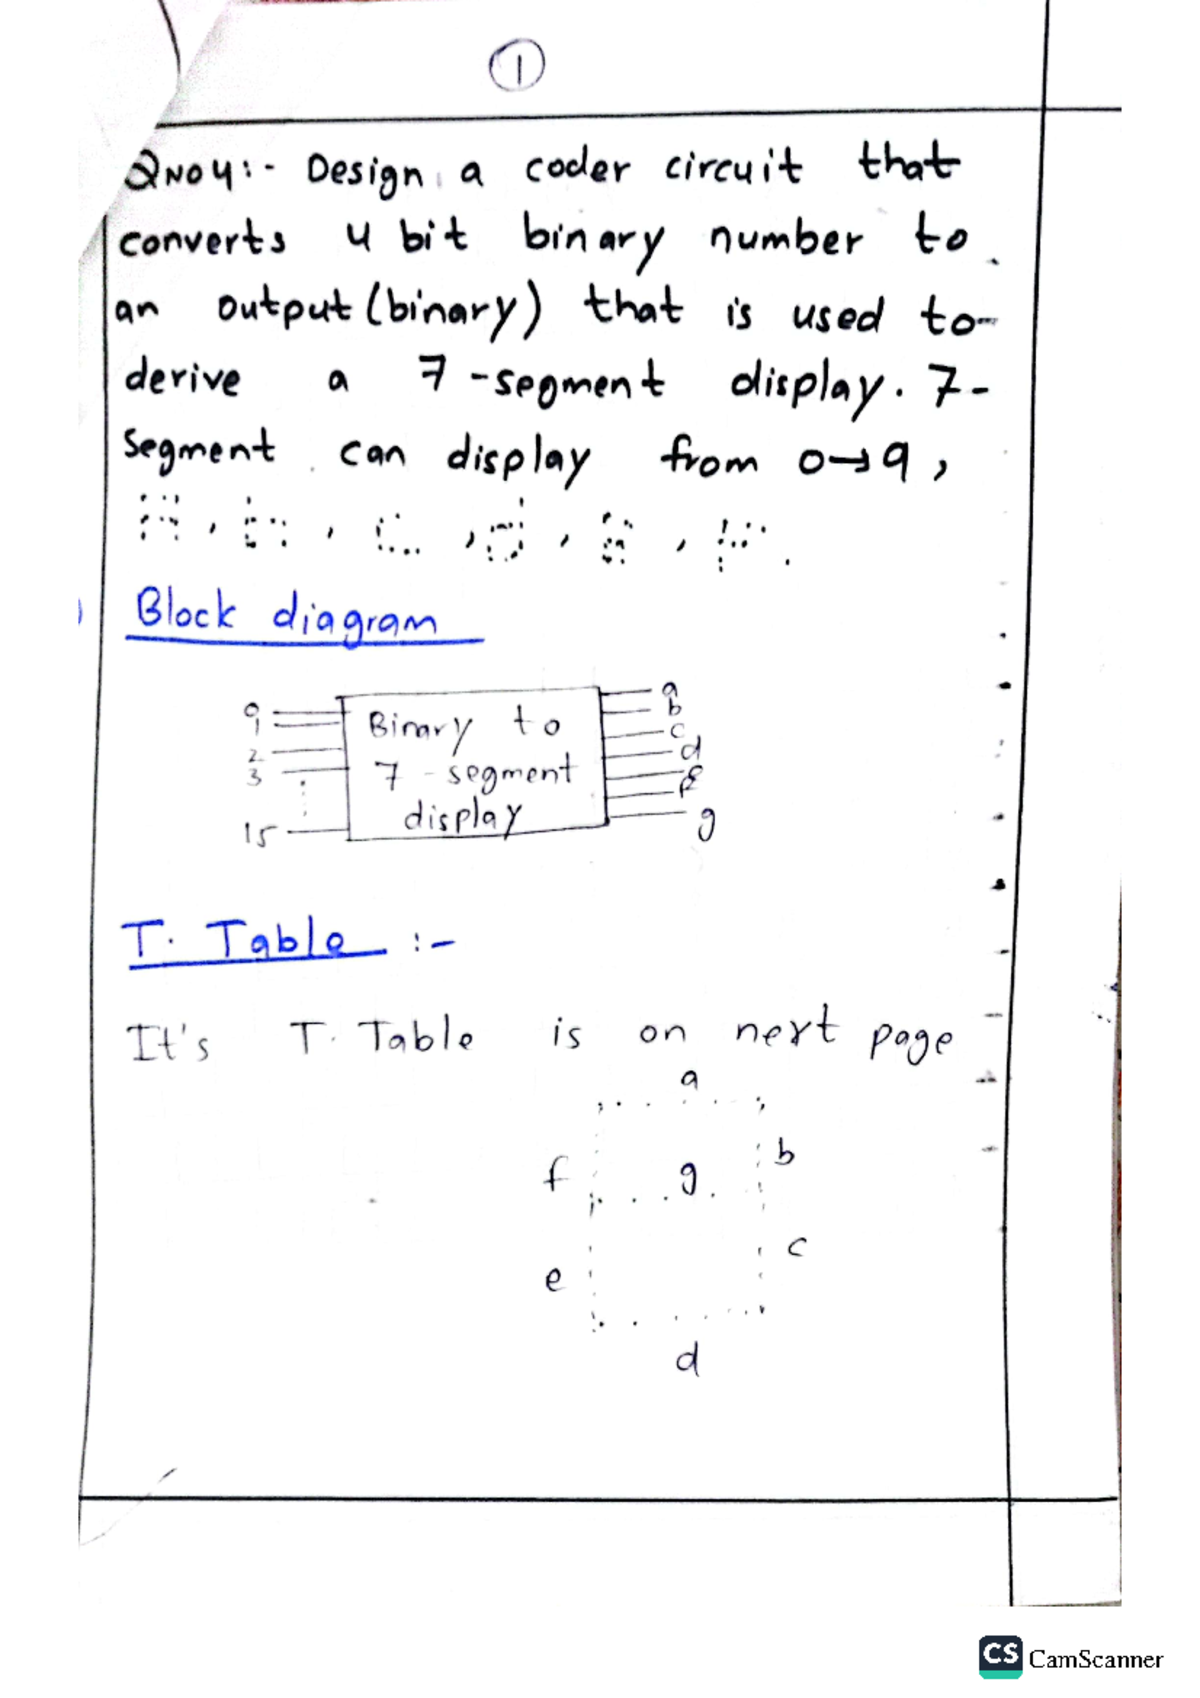 1
QNO4:- Design a coder circuit that
converts 4 bit binary number to
an output (binary) that is used to
derive a 7-segment display. 7-
Segment can display from 0→9,
A, b, c, d, E, F.
Block diagram
0
1
2
3
15
Binary to
7 - segment
display
a
b
c
d
e
f
g
T. Table :-
It's T. Table is on next page
a
f g b
e c
d
CS CamScanner